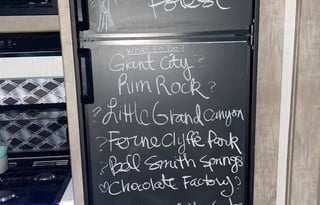 Forest
What to Do?
Giant City?
Rim Rock?
? Little Grand Canyon
? Ferne Clyffe Park
? Bell Smith Springs
♡ Chocolate Factory?